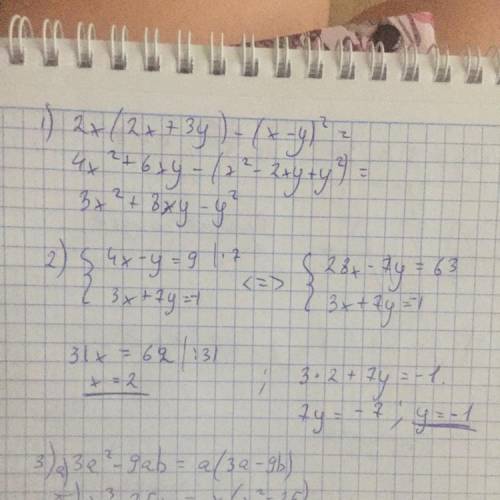 1) 2x(2x+3y)-(x-y)² =
4x²+6xy-(x²-2xy+y²)=
3x²+8xy-y²
2) { 4x-y=9 |·7 <=> { 28x-7y=63
3x+7y=-1 3x+7y=-1
31x = 62 |:31 ; 3·2+7y=-1.
x=2 7y=-7; y=-1
3) a) 3a²-9ab = a(3a-9b)